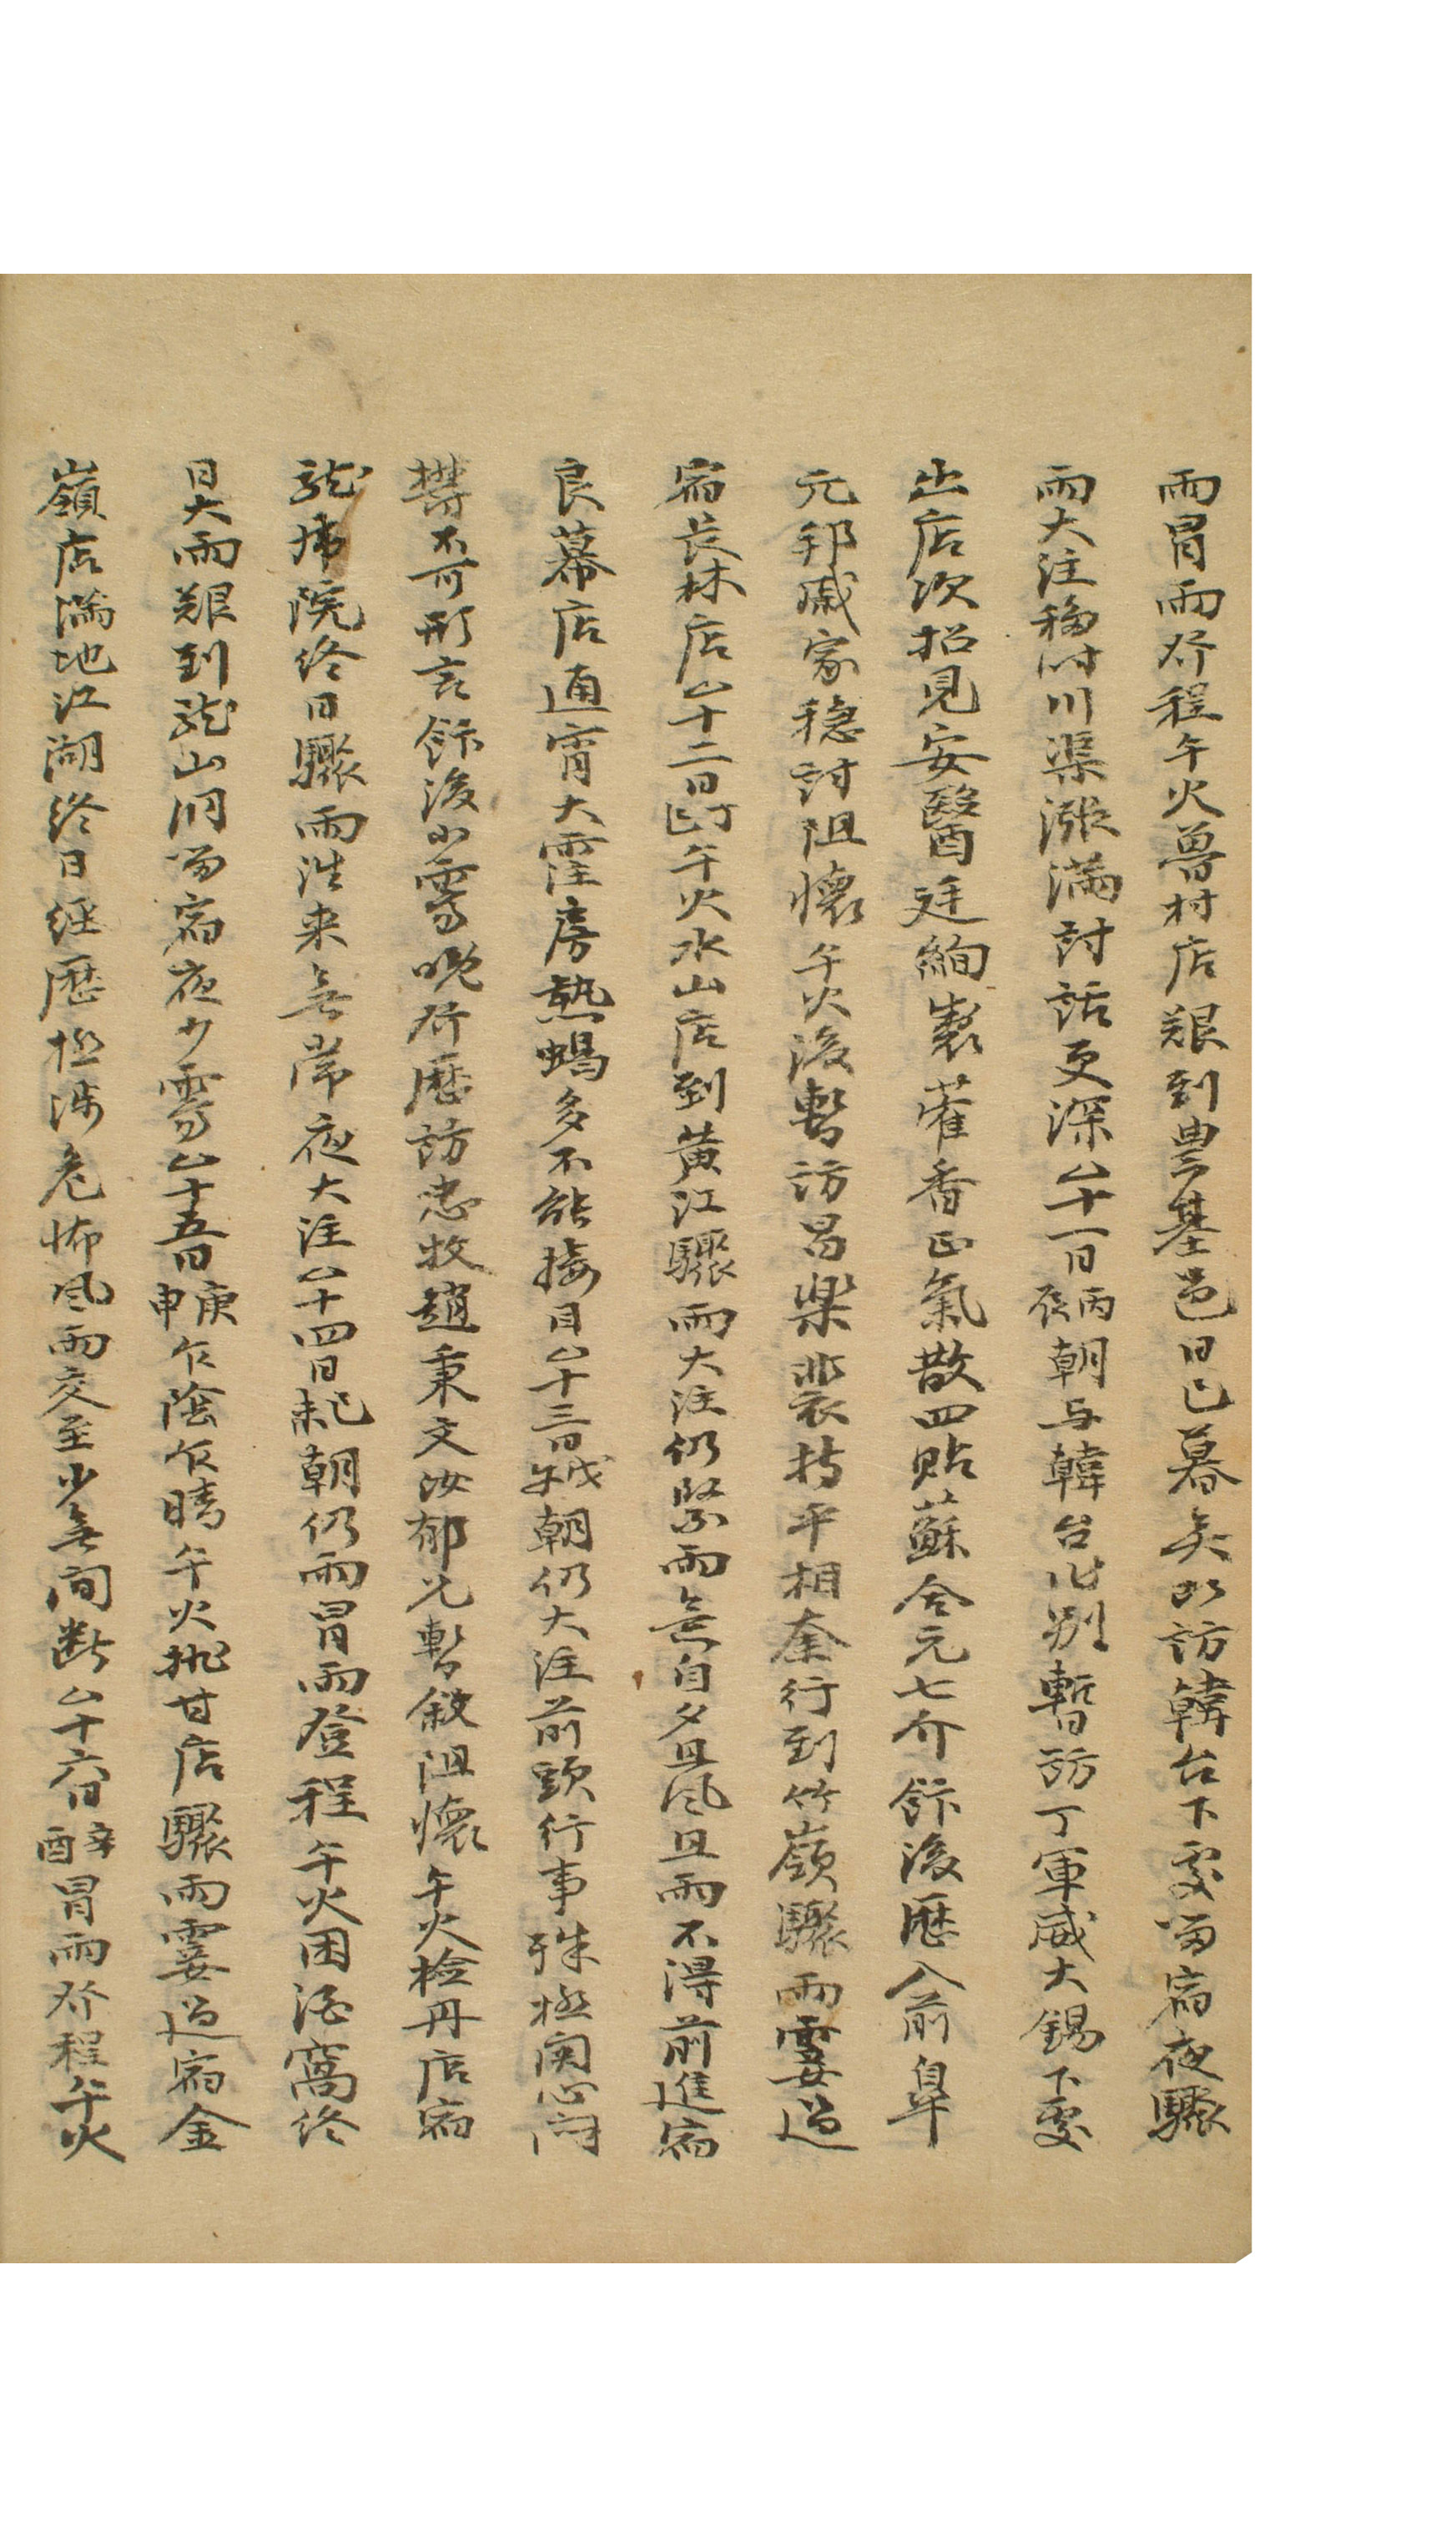 雨冒雨發程午火曾村店艱到豊基邑日已暮矣卽訪韓台下處留宿夜驟
雨大注稳討川渠漲滿討話更深△十一日丙辰朝与韓台作別暫訪丁軍威大錫下處
出店次招見安醫廷絢製藿香正氣散四貼蘇合元七介飰後歷入前皐
元邦戚家稳討阻懷午火後暫訪昌樂裴持平相奎行到竹嶺驟雨霎過
宿長林店△十二日丁巳午火水山店到黃江驟雨大注仍緊雨無自夕且風且雨不得前進宿
良幕店通宵大霔房熱蝎多不能接目△十三日戊午朝仍大注前頭行事殊極関心悶
欝不可形言飰後小霽晩發歷訪忠牧趙秉文汝郁兄暫敘阻懷午火檢丹店宿
龍庤院終日驟雨往来無常夜大注△十四日己未朝仍雨冒雨登程午火困池窩終
日大雨艱到龍山洞留宿夜少霽△十五日庚申乍陰乍晴午火挑甘店驟雨霎過宿金
嶺店滿地江湖終日経歷極涉危怖風雨交至少無間断△十六日辛酉冒雨發程午火